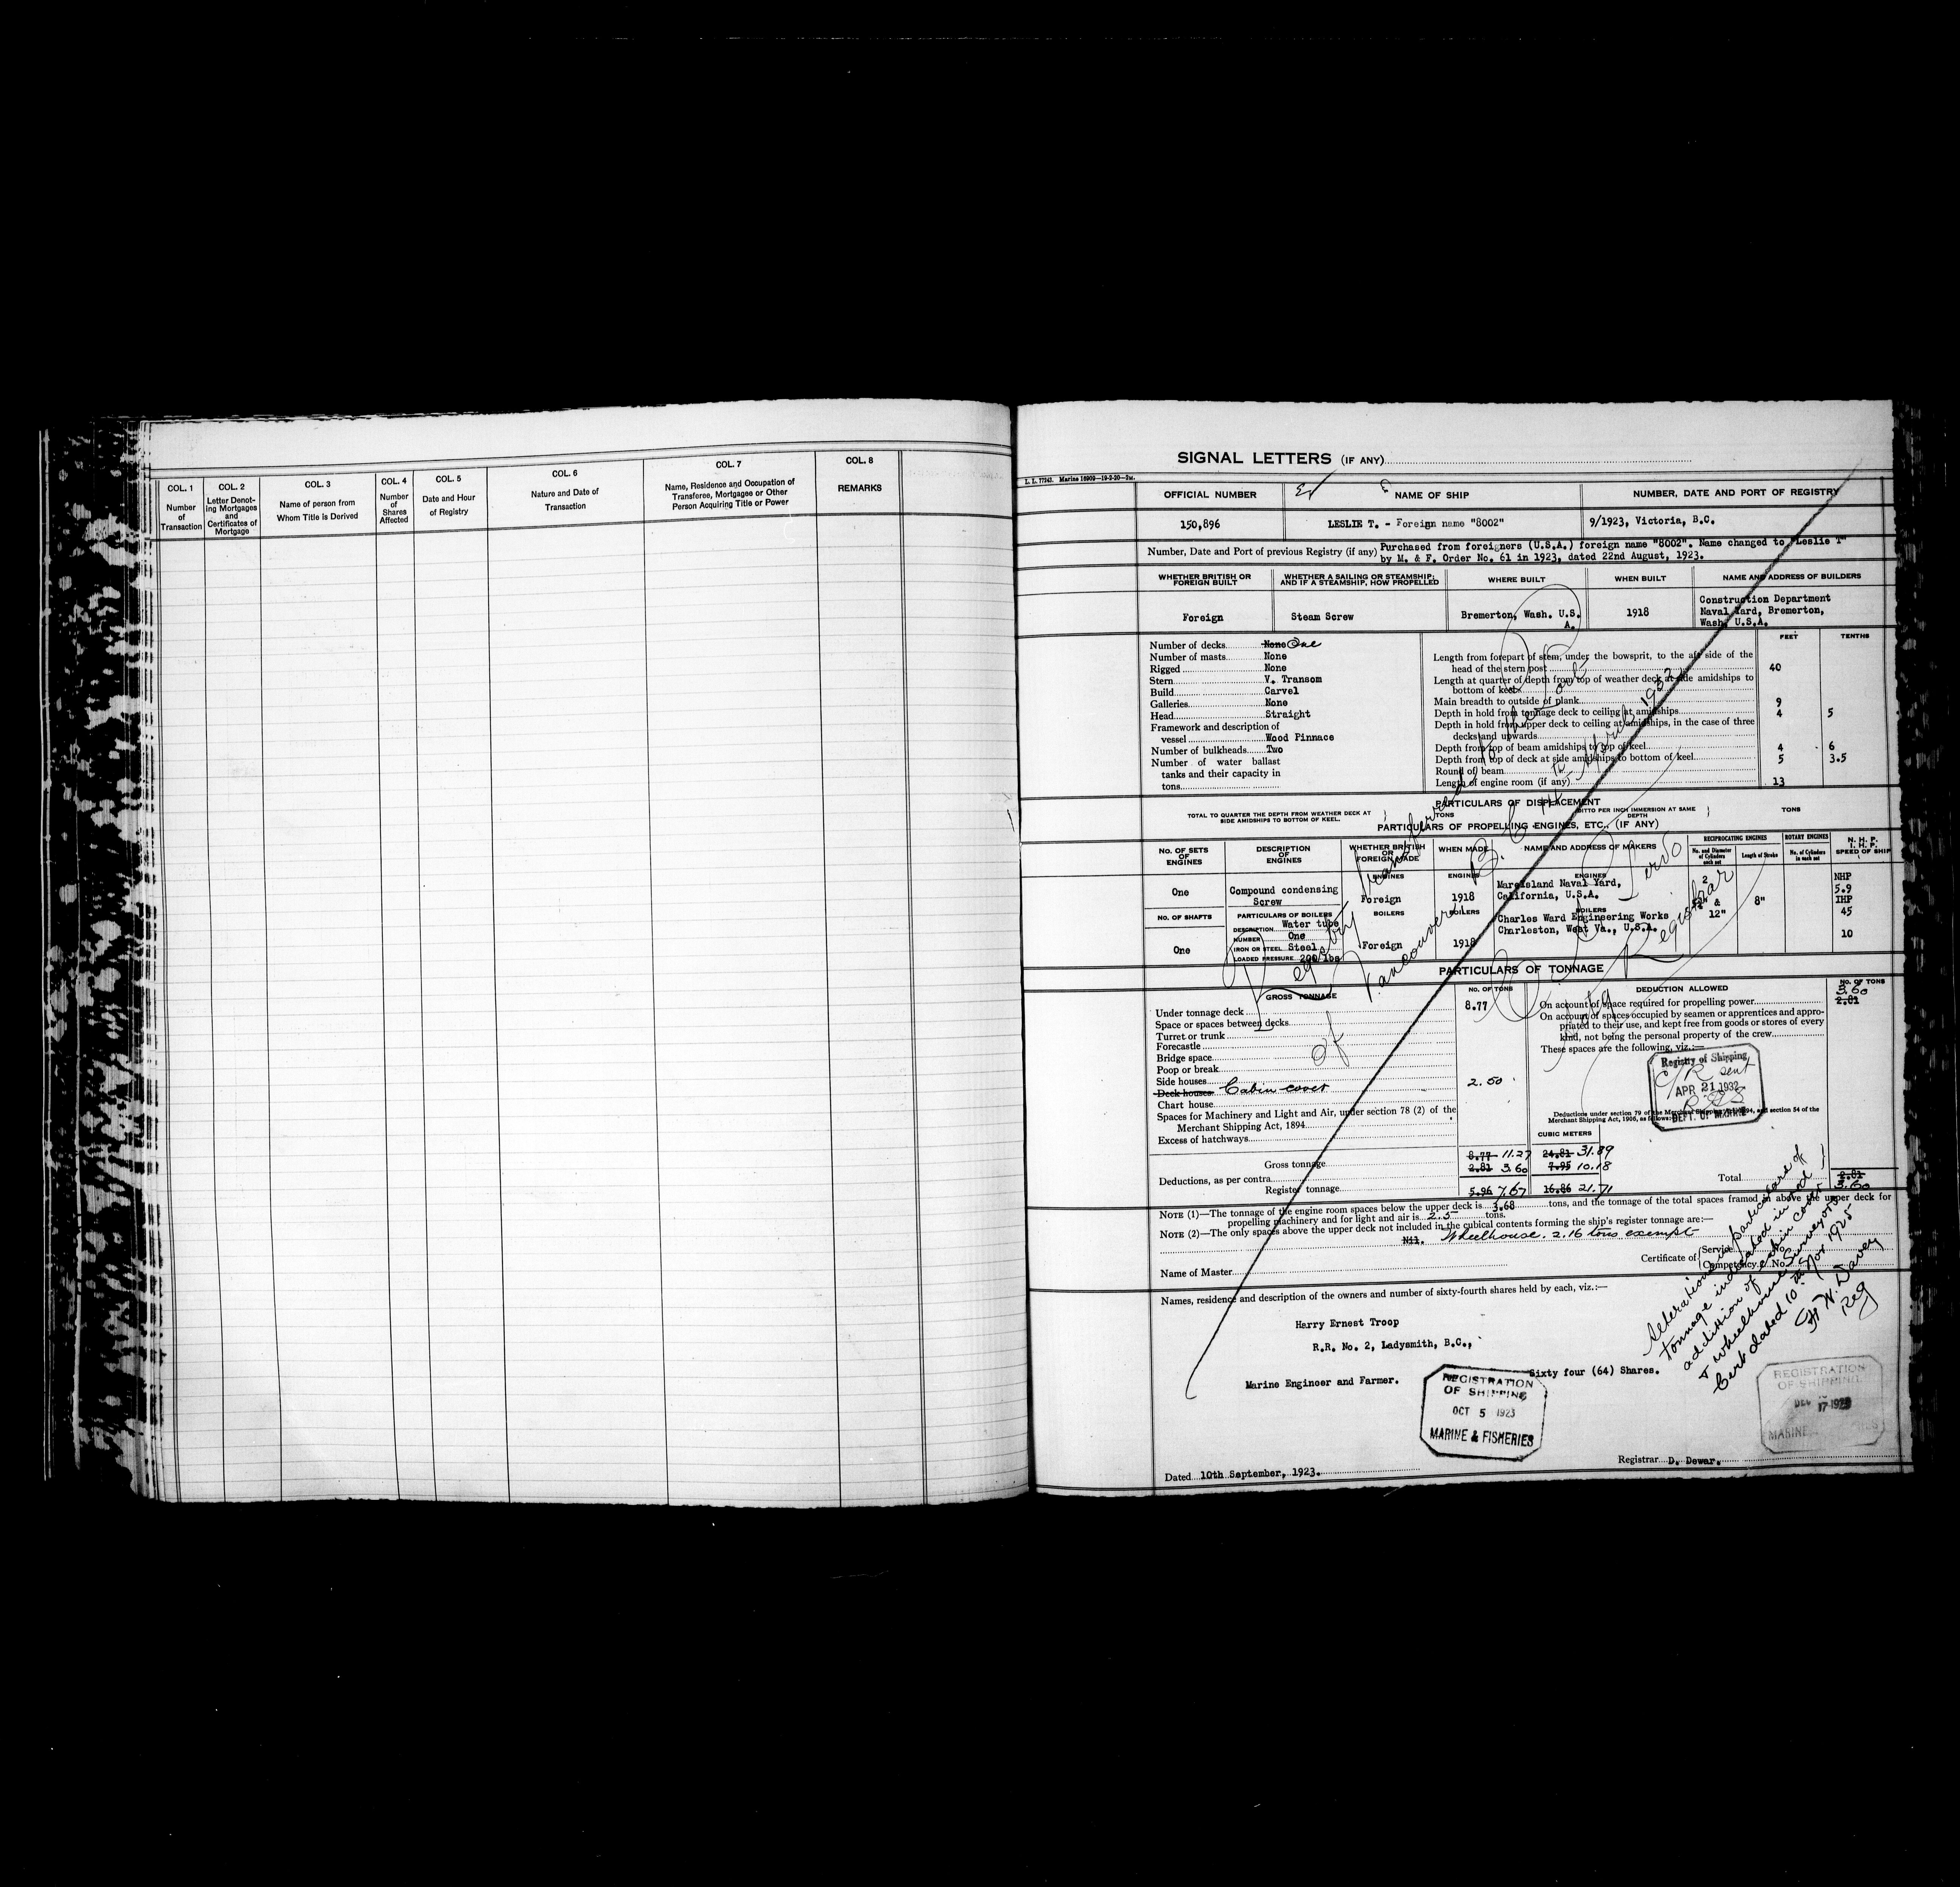 COL. 1
Number
of
Transaction
COL. 2
Letter Denot-
ing Mortgages
and
Certificates of
Mortgage
COL. 3
Name of person from
Whom Title is Derived
COL. 4
Number
of
Shares
Affected
COL. 5
Date and Hour
of Registry
COL. 6
Nature and Date of
Transaction
COL. 7
Name, Residence and Occupation of
Transferee, Mortgagee or Other
Person Acquiring Title or Power
COL. 8
REMARKS
SIGNAL LETTERS (IF ANY)
L. L. 77243. Marine 16909—19-3-20—2M.
OFFICIAL NUMBER
NAME OF SHIP
NUMBER, DATE AND PORT OF REGISTRY
150,896
LESLIE T. - Foreign name "8002"
9/1923, Victoria, B.C.
Number, Date and Port of previous Registry (if any) Purchased from foreigners (U.S.A.) foreign name "8002". Name changed to "Leslie T"
by M. & F. Order No. 61 in 1923, dated 22nd August, 1923.
WHETHER BRITISH OR
FOREIGN BUILT
WHETHER A SAILING OR STEAMSHIP;
AND IF A STEAMSHIP, HOW PROPELLED
WHERE BUILT
WHEN BUILT
NAME AND ADDRESS OF BUILDERS
Foreign
Steam Screw
Bremerton, Wash. U.S.
A.
1918
Construction Department
Naval Yard, Bremerton,
Wash. U.S.A.
FEET
TENTHS
Number of decks None One
Number of masts None
Rigged None
Stern V. Transom
Build Carvel
Galleries None
Head Straight
Framework and description of
vessel Wood Pinnace
Number of bulkheads Two
Number of water ballast
tanks and their capacity in
tons
Length from forepart of stem, under the bowsprit, to the aft side of the
head of the stern post 40
Length at quarter of depth from top of weather deck at side amidships to
bottom of keel
Main breadth to outside of plank 9
Depth in hold from tonnage deck to ceiling at amidships 4 5
Depth in hold from upper deck to ceiling at amidships, in the case of three
decks and upwards
Depth from top of beam amidships to top of keel 4 6
Depth from top of deck at side amidships to bottom of keel 5 3.5
Round of beam
Length of engine room (if any) 13
PARTICULARS OF DISPLACEMENT
TOTAL TO QUARTER THE DEPTH FROM WEATHER DECK AT
SIDE AMIDSHIPS TO BOTTOM OF KEEL.
TONS
DITTO PER INCH IMMERSION AT SAME
DEPTH
TONS
PARTICULARS OF PROPELLING ENGINES, ETC., (IF ANY)
No. OF SETS
OF
ENGINES
DESCRIPTION
OF
ENGINES
WHETHER BRITISH
OR
FOREIGN MADE
WHEN MADE
NAME AND ADDRESS OF MAKERS
RECIPROCATING ENGINES
No. and Diameter
of Cylinders
each set
Length of Stroke
ROTARY ENGINES
No. of Cylinders
in each set
N. H. P.
I. H. P.
SPEED OF SHIP
ENGINES
ENGINES
ENGINES
One
Compound condensing
Screw
Foreign
1918
Mare Island Naval Yard,
California, U.S.A.
2
&
12"
8"
NHP
5.9
IHP
45
10
No. OF SHAFTS
One
PARTICULARS OF BOILERS
DESCRIPTION Water tube
NUMBER One
IRON OR STEEL Steel
LOADED PRESSURE 200 lbs
BOILERS
Foreign
BOILERS
1918
BOILERS
Charles Ward Engineering Works
Charleston, West Va., U.S.A.
PARTICULARS OF TONNAGE
GROSS TONNAGE
No. OF TONS
DEDUCTION ALLOWED
No. OF TONS
Under tonnage deck 8.77
Space or spaces between decks
Turret or trunk
Forecastle
Bridge space
Poop or break
Side houses
Deck houses Cabin cover 2.50
Chart house
Spaces for Machinery and Light and Air, under section 78 (2) of the
Merchant Shipping Act, 1894
Excess of hatchways
Gross tonnage 8.77 11.27 24.81 31.89
Deductions, as per contra 2.81 3.60 7.95 10.18
Register tonnage 5.96 7.67 16.86 21.71
CUBIC METERS
3.60
On account of space required for propelling power 2.81
On account of spaces occupied by seamen or apprentices and appro-
priated to their use, and kept free from goods or stores of every
kind, not being the personal property of the crew
These spaces are the following, viz.:—
Registry of Shipping
C/R sent
APR 21 1932
DEPT. OF MARINE
Deductions under section 79 of the Merchant Shipping Act, 1894, and section 54 of the
Merchant Shipping Act, 1906, as follows:
Total 2.81
3.60
NOTE (1)—The tonnage of the engine room spaces below the upper deck is 3.68 tons, and the tonnage of the total spaces framed in above the upper deck for
propelling machinery and for light and air is 2.5 tons.
NOTE (2)—The only spaces above the upper deck not included in the cubical contents forming the ship's register tonnage are:—
Nil. Wheelhouse. 2.16 tons exempt
Name of Master
Certificate of Service
Competency No.
Names, residence and description of the owners and number of sixty-fourth shares held by each, viz.:—
Harry Ernest Troop
R.R. No. 2, Ladysmith, B.C.,
Marine Engineer and Farmer.
Sixty four (64) Shares.
REGISTRATION
OF SHIPPING
OCT 5 1923
MARINE & FISHERIES
Dated 10th September, 1923.
Registrar D. Dewar.
Registry transferred to the Port
of Vancouver B.C. 14th April 1932
Registrar
Alterations in particulars of
tonnage indicated in red
addition of cabin cover
& wheelhouse Surveyors
Cert dated 10th Nov 1925
H W. Davey
Reg
REGISTRATION
OF SHIPPING
MARINE